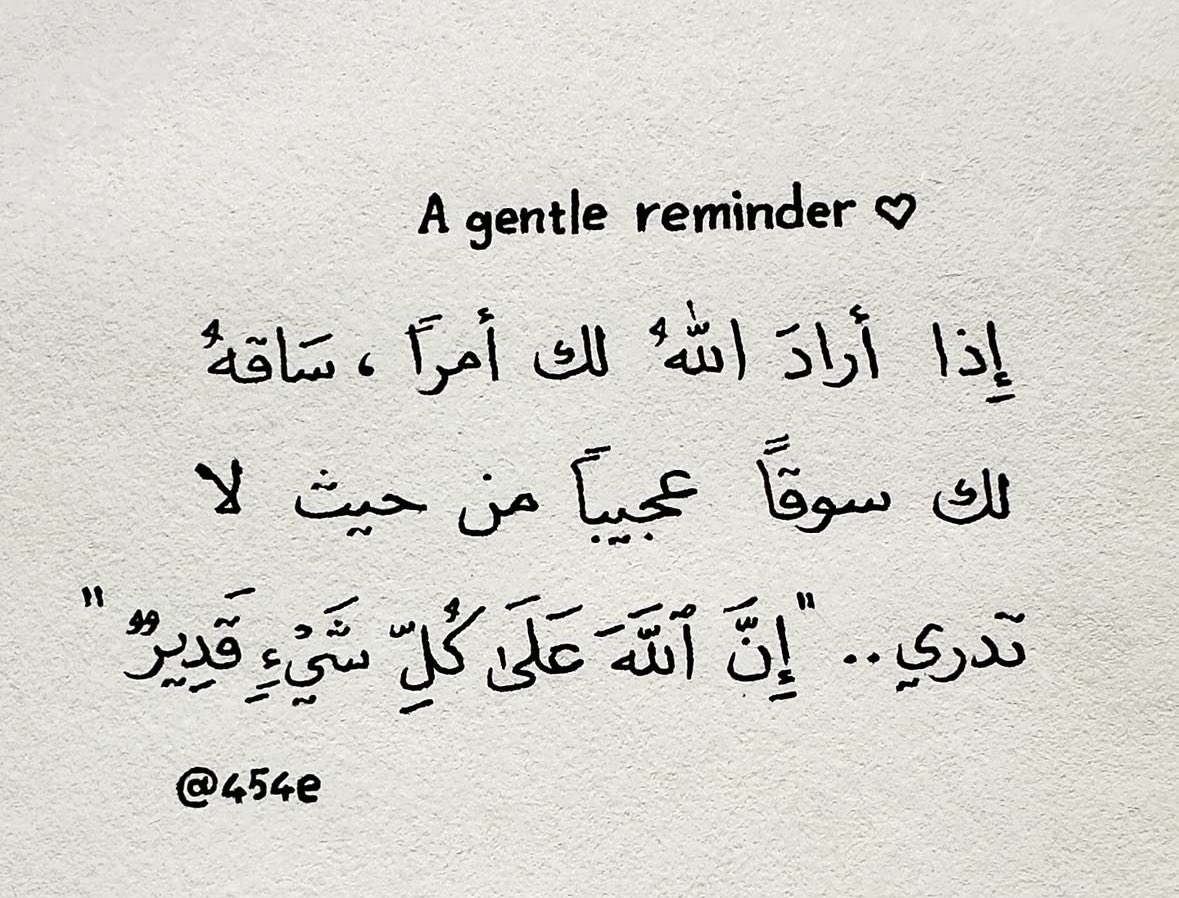 A gentle reminder ♡
إِذا أرادَ اللّٰهُ لك أمراً ، سَاقهُ
لك سوقاً عجيباً من حيث لا
تدري .. "إِنَّ ٱللَّهَ عَلَىٰ كُلِّ شَيْءٍ قَدِيرٌ"
@454e